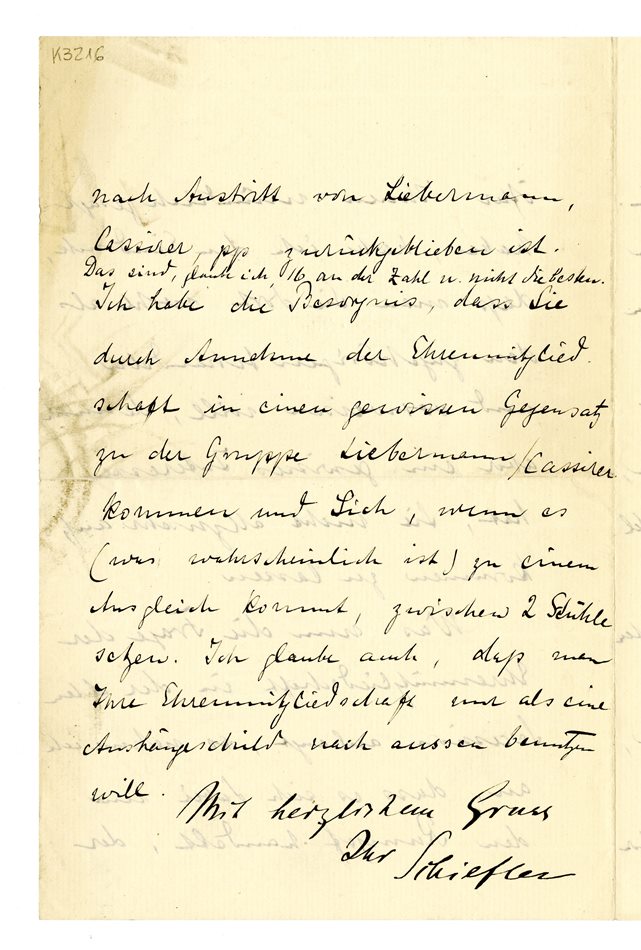 K3216
nach Austritt von Liebermann,
Cassirer, pp zurückgeblieben ist.
Das sind, glaube ich, 16 an der Zahl u. nicht die besten.
Ich habe die Besorgnis, dass Sie
durch Annehme der Ehrenmitglied
schaft in einen gewissen Gegensatz
zu der Gruppe Liebermann/Cassirer
kommen und Sich, wenn es
(was wahrscheinlich ist) zu einem
Ausgleich kommt, zwischen 2 Stühle
setzen. Ich glaube auch, daß man
Ihre Ehrenmitgliedschaft nur als eine
Aushängeschild nach aussen benutzen
will.
Mit herzlichem Gruss
Ihr
Schiefler